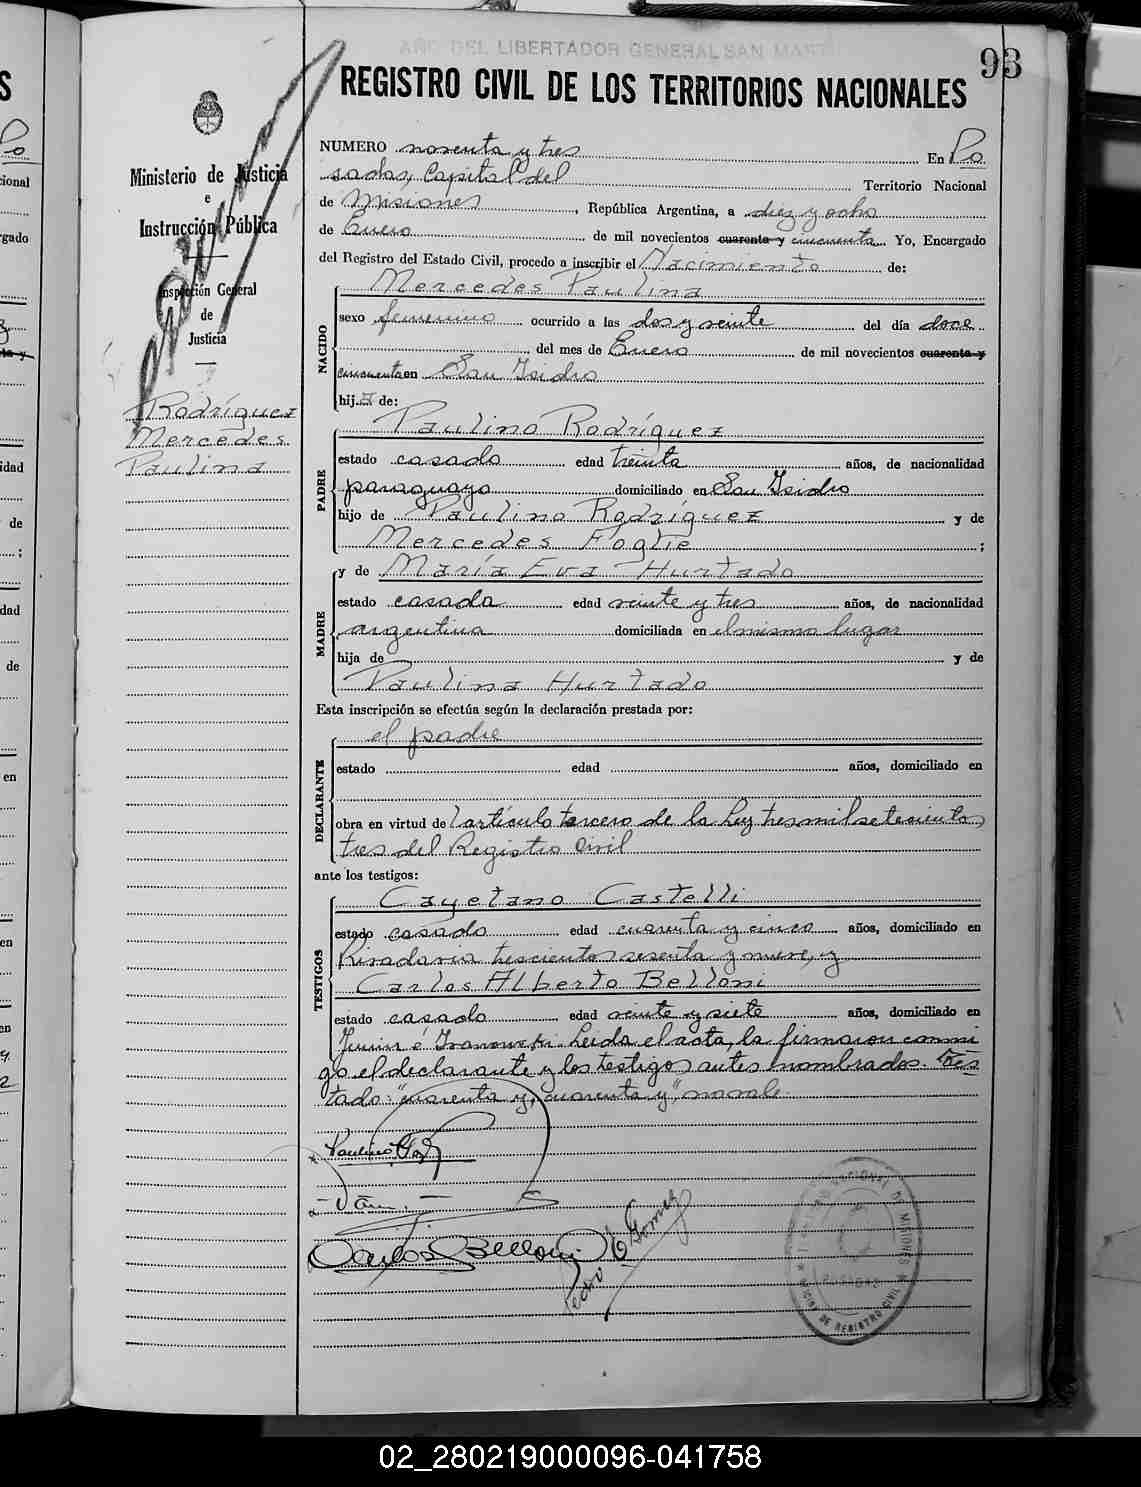 AÑO DEL LIBERTADOR GENERAL SAN MARTIN
93
REGISTRO CIVIL DE LOS TERRITORIOS NACIONALES
Ministerio de Justicia
e
Instrucción Pública
Inspección General
de
Justicia
Rodríguez
Mercedes
Paulina
NUMERO noventa y tres En Po
sadas, Capital del Territorio Nacional
de Misiones, República Argentina, a diez y ocho
de Enero de mil novecientos cuarenta y cincuenta. Yo, Encargado
del Registro del Estado Civil, procedo a inscribir el Nacimiento de:
Mercedes Paulina
NACIDO
sexo femenino ocurrido a las dos y veinte del día doce
del mes de Enero de mil novecientos cuarenta y
cincuenta en San Isidro
hija de:
Paulino Rodríguez
PADRE
estado casado edad treinta años, de nacionalidad
paraguaya domiciliado en San Isidro
hijo de Paulino Rodríguez y de
Mercedes Foglie;
y de María Eva Hurtado
MADRE
estado casada edad veinte y tres años, de nacionalidad
argentina domiciliada en el mismo lugar
hija de y de
Paulina Hurtado
Esta inscripción se efectúa según la declaración prestada por:
el padre
DECLARANTE
estado edad años, domiciliado en
obra en virtud del artículo tercero de la Ley tres mil setecientos
tres del Registro Civil
ante los testigos:
Cayetano Castelli
TESTIGOS
estado casado edad cuarenta y cinco años, domiciliado en
Rivadavia trescientos sesenta y nueve, y
Carlos Alberto Belloni
estado casado edad veinte y siete años, domiciliado en
Junín é Ivanowski. Leida el acta, la firmaron conmi
go el declarante y los testigos antes nombrados. Tes
tado: "cuarenta y, cuarenta y", no vale.
Paulino
Carlos Belloni
Pedro Gomez
NACIONAL DE MISIONES
POSADAS
OFICINA DE REGISTRO CIVIL
02_280219000096-041758